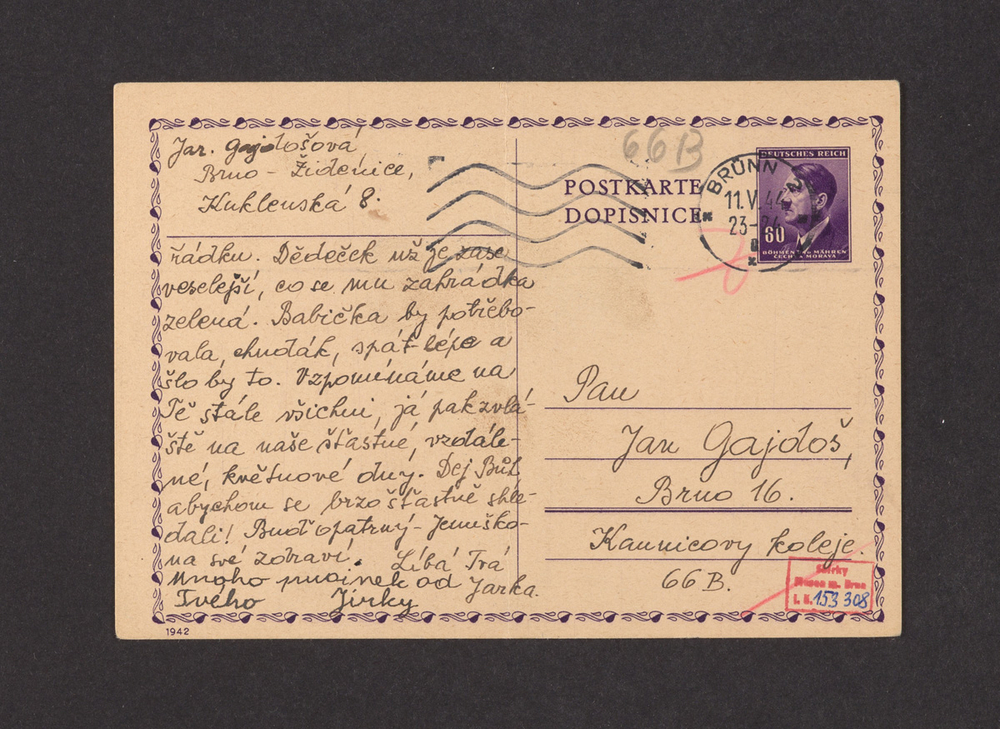 Jar. Gajdošová
Brno - Židenice,
Kuklenská 8.
66B
POSTKARTE
DOPISNICE
BRÜNN
11.V.44
23-24
DEUTSCHES REICH
60
BÖHMEN UND MÄHREN
ČECHY A MORAVA
řádku. Dědeček už je zase
veselejší, co se mu zahrádka
zelená. Babička by potřebo-
vala, chuďák, spát lépe a
šlo by to. Vzpomínáme na
Tě stále všichni, já pak zvlá-
ště na naše šťastné, vzdále-
né, květnové dny. Dej Bůh
abychom se brzo šťastně shle-
dali! Buď opatrný - Jeníško-
na své zdraví. Líbá Tvá
Jarka.
Mnoho pusinek od
Tvého Jirky
Pan
Jan Gajdoš,
Brno 16.
Kaunicovy koleje.
66 B.
Sbírky
Musea m. Brna
i. č. 153 308
1942